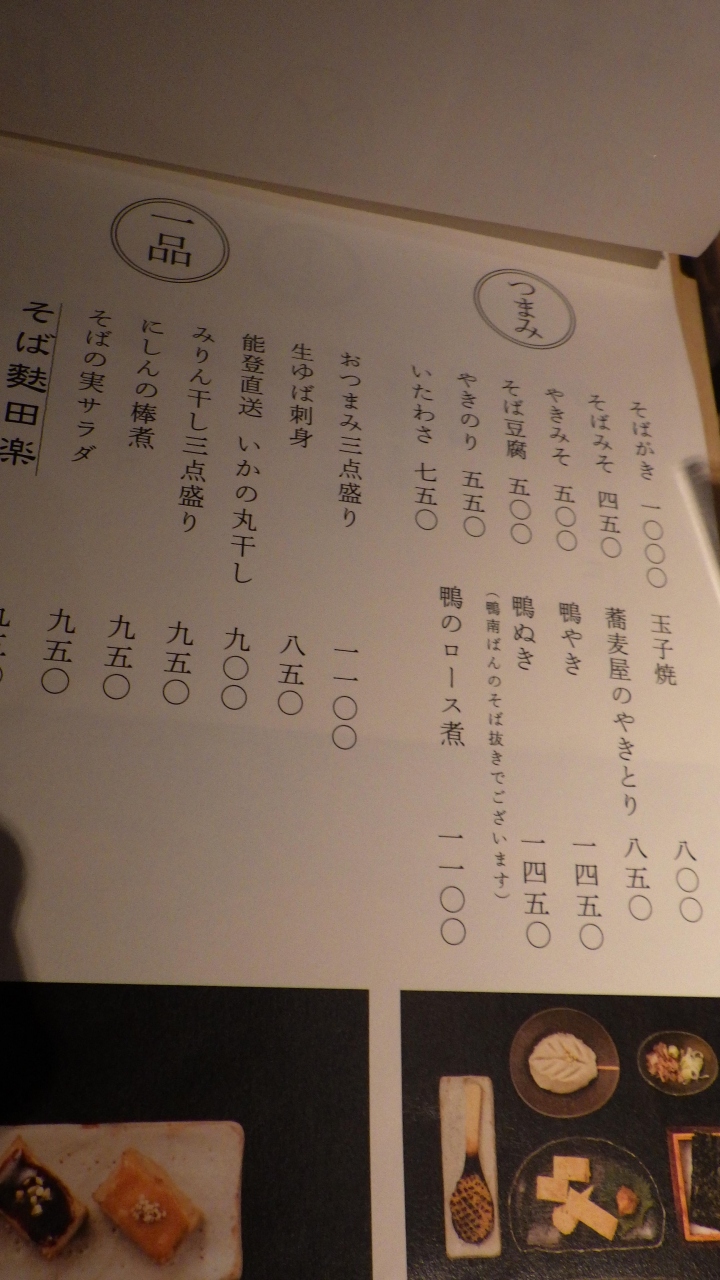 つまみ
そばがき 一〇〇〇
そばみそ 四五〇
やきみそ 五〇〇
そば豆腐 五〇〇
やきのり 五五〇
いたわさ 七五〇
玉子焼 八〇〇
蕎麦屋のやきとり 八五〇
鴨やき 一四五〇
鴨ぬき 一四五〇
（鴨南ばんのそば抜きでございます）
鴨のロース煮 一一〇〇
一品
おつまみ三点盛り 一一〇〇
生ゆば刺身 八五〇
能登直送 いかの丸干し 九〇〇
みりん干し三点盛り 九五〇
にしんの棒煮 九五〇
そばの実サラダ 九五〇
そば麩田楽